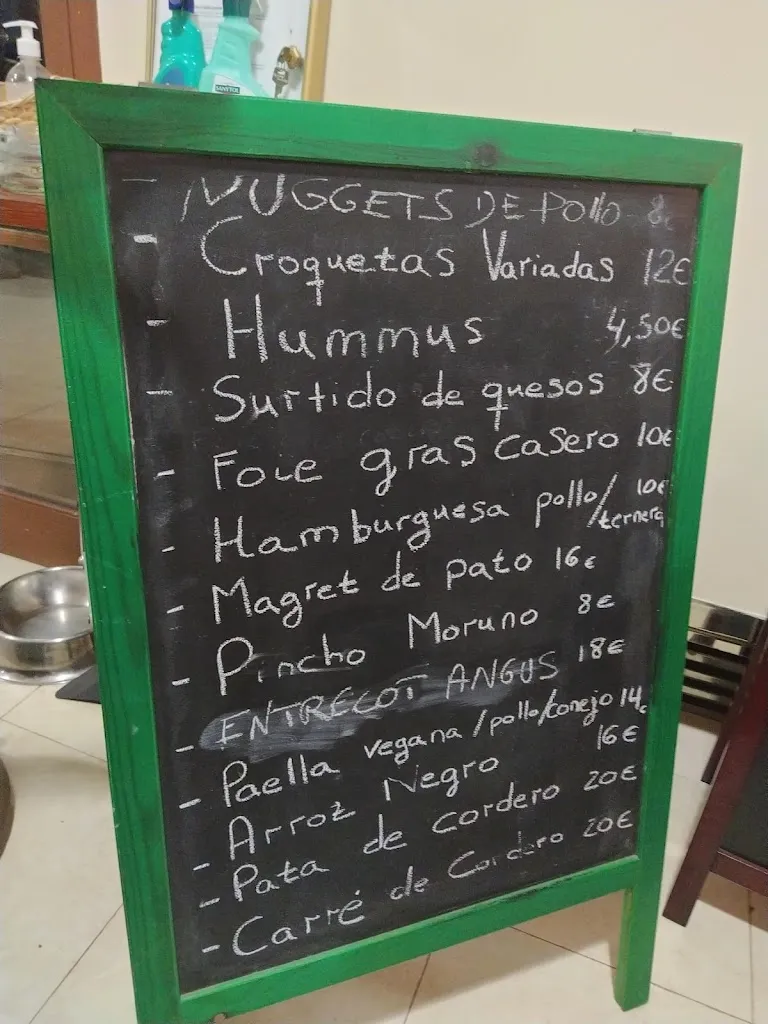 SANYTOL
- NUGGETS DE POllO - 8€
- Croquetas Variadas 12€
- Hummus 4,50€
- Surtido de quesos 8€
- Foie gras casero 10€
- Hamburguesa pollo/ternera 10€
- Magret de pato 16€
- Pincho Moruno 8€
- ENTRECOT ANGUS 18€
- Paella vegana/pollo/conejo 14€
- Arroz Negro 16€
- Pata de cordero 20€
- Carré de Cordero 20€